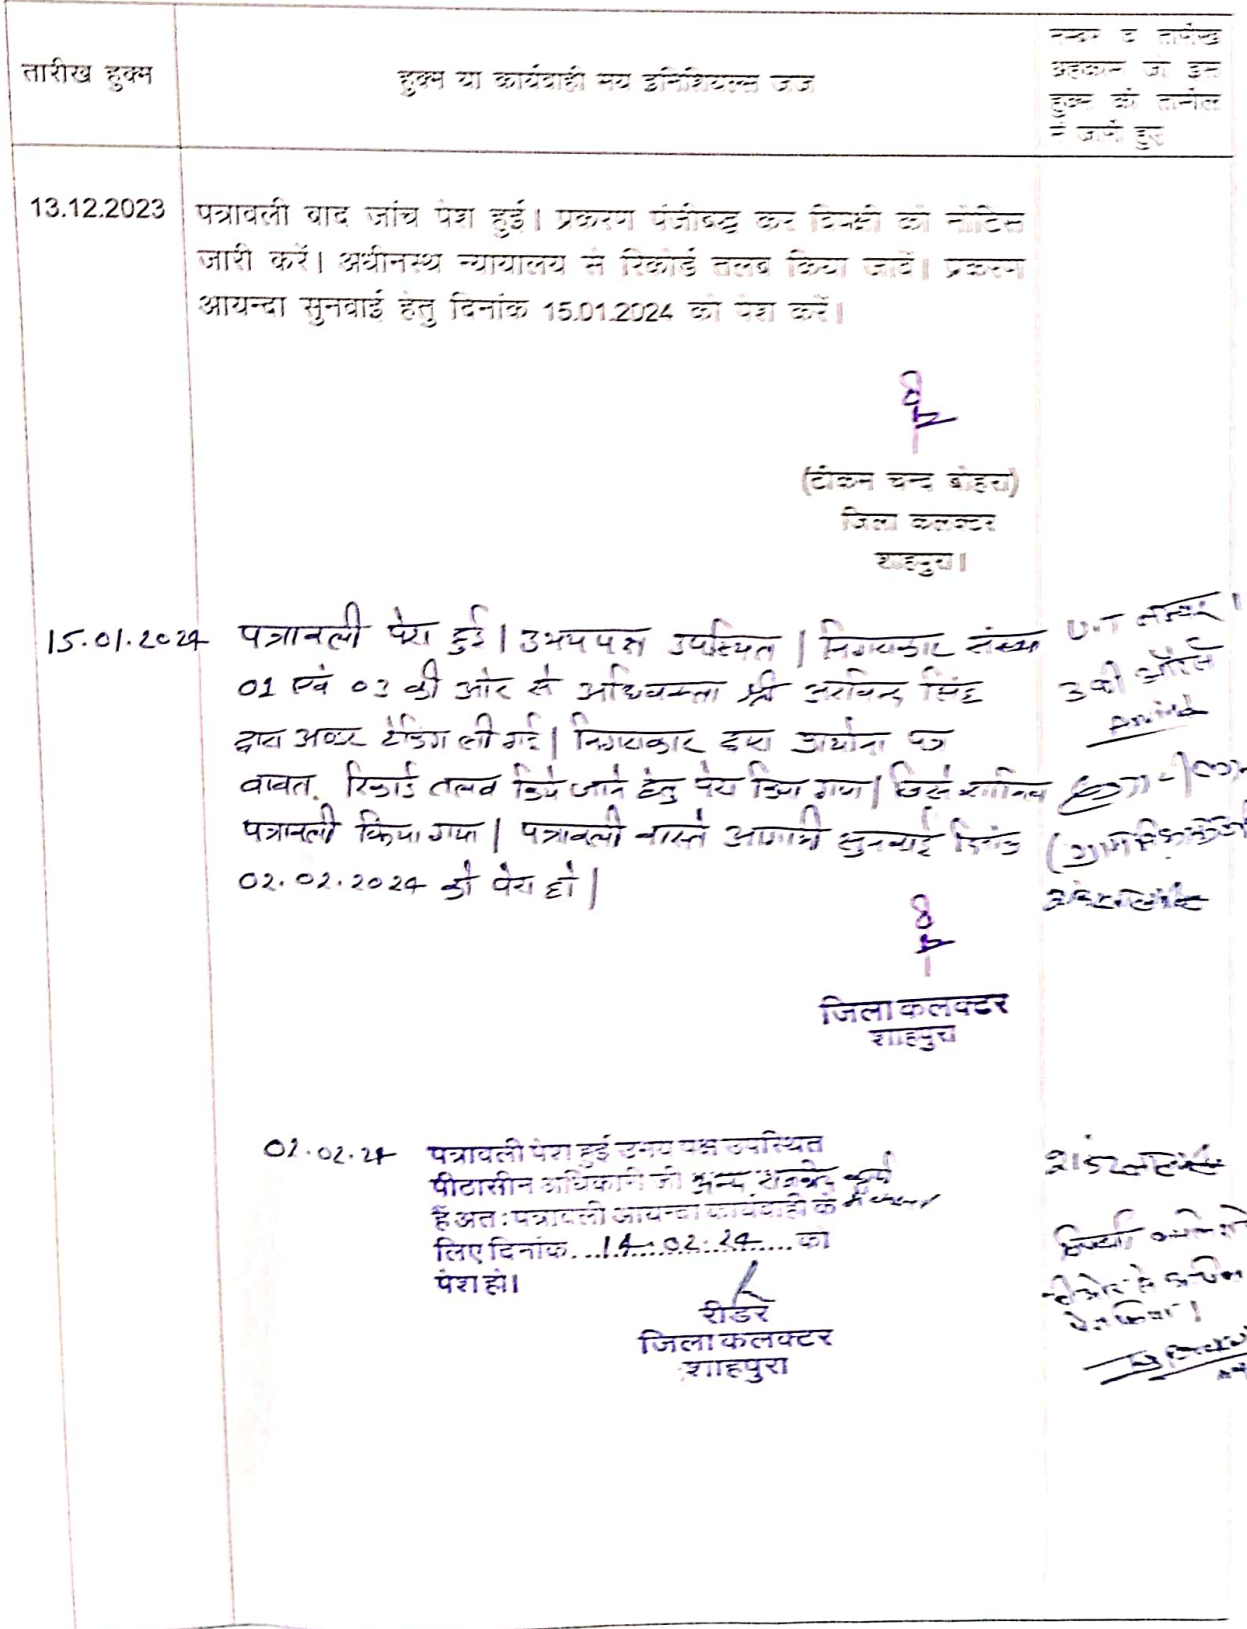 तारीख हुक्म
हुक्म या कार्यवाही मय इनिशियल्स जज
नम्बर व तारीख
अहकाम जो इस
हुक्म की तामील
में जारी हुए
13.12.2023
पत्रावली बाद जांच पेश हुई। प्रकरण पंजीबद्ध कर विपक्षी को नोटिस
जारी करें। अधीनस्थ न्यायालय से रिकोर्ड तलब किया जावें। प्रकरण
आयन्दा सुनवाई हेतु दिनांक 15.01.2024 को पेश करें।
(टीकम चन्द बोहरा)
जिला कलक्टर
शाहपुरा।
15.01.2024
पत्रावली पेश हुई। उभयपक्ष उपस्थित। निगराकार संख्या
01 एवं 03 की ओर से अधिवक्ता श्री अरविन्द सिंह
द्वारा अण्डर टेकिंग ली गई। निगराकार द्वारा प्रार्थना पत्र
बाबत रिकार्ड तलब किये जाने हेतु पेश किया गया। जिसे शामिल
पत्रावली किया गया। पत्रावली वास्ते आगामी सुनवाई दिनांक
02.02.2024 को पेश हो।
U.T नम्बर 1
3 की ओर से
जिला कलक्टर
शाहपुरा
02.02.24
पत्रावली पेश हुई उभय पक्ष उपस्थित
पीठासीन अधिकारी जी अन्य राजकीय कार्य
हैं अत: पत्रावली आयन्दा कार्यवाही के
लिए दिनांक...14.02.24...को
पेश हो।
रीडर
जिला कलक्टर
शाहपुरा
की ओर से
पेश किया।